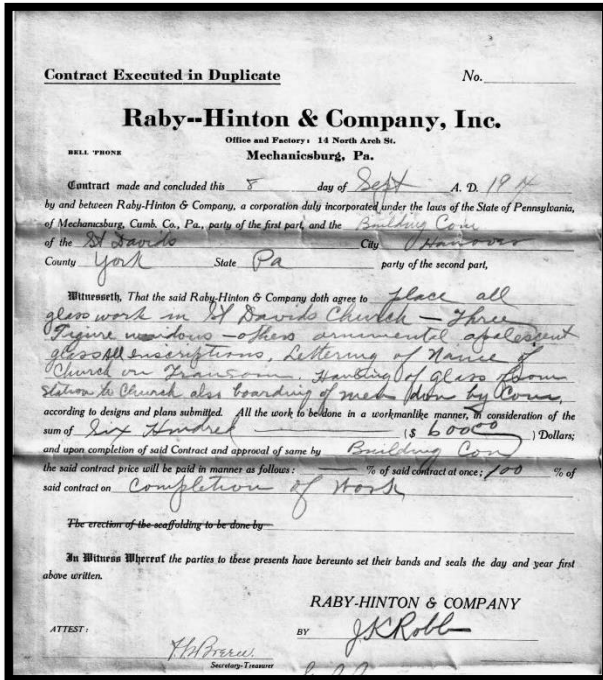 Contract Executed in Duplicate No.
Raby--Hinton & Company, Inc.
Office and Factory: 14 North Arch St.
BELL 'PHONE
Mechanicsburg, Pa.
Contract made and concluded this 8 day of Sept A. D. 19
by and between Raby-Hinton & Company, a corporation duly incorporated under the laws of the State of Pennsylvania,
of Mechanicsburg, Cumb. Co., Pa., party of the first part, and the Building Com
of the St Davids City Hanover
County York State Pa party of the second part,
Witnesseth, That the said Raby-Hinton & Company doth agree to place all
glass work in St Davids Church — Three
Figure windows — others ornmental opalescent
glass All inscriptions, Lettering of Name of
Church on Transom, Hauling of Glass from
Station to Church also boarding of men don by Com,
according to designs and plans submitted. All the work to be done in a workmanlike manner, in consideration of the
sum of Six Hundred ($ 600 00 ) Dollars;
and upon completion of said Contract and approval of same by Building Com
the said contract price will be paid in manner as follows: % of said contract at once; 100 % of
said contract on Completion of Work
The erection of the scaffolding to be done by
In Witness Whereof the parties to these presents have hereunto set their hands and seals the day and year first
above written.
RABY-HINTON & COMPANY
ATTEST: BY J.K Robb
Secretary-Treasurer